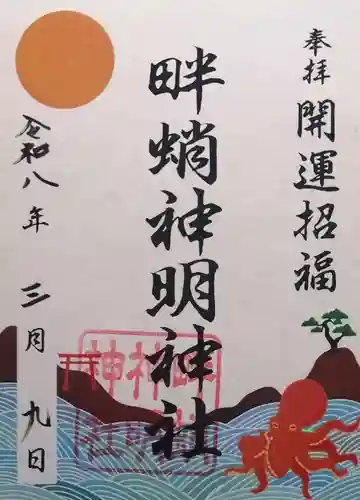 奉拝
開運招福
畔蛸神明神社
令和八年 三月 九日